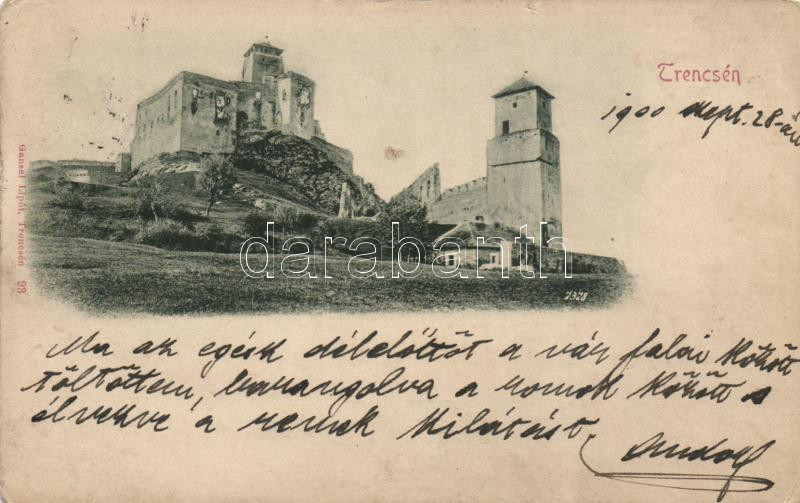 Trencsén
1900 Szept. 28-án
Gansel Lipót, Trencsén 93
darabanth
7378
Ma az egész délelőttöt a vár falai között
töltöttem, barangolva a romok között s
élvezve a remek kilátást.
Rudolf